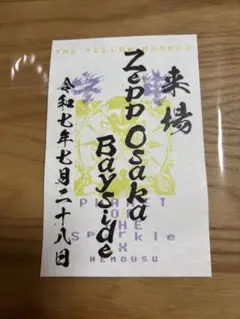 THE YELLOW MONKEY
来場
Zepp Osaka
Bayside
令和七年七月二十八日
PLANET
OF
THE
Sparkle
X